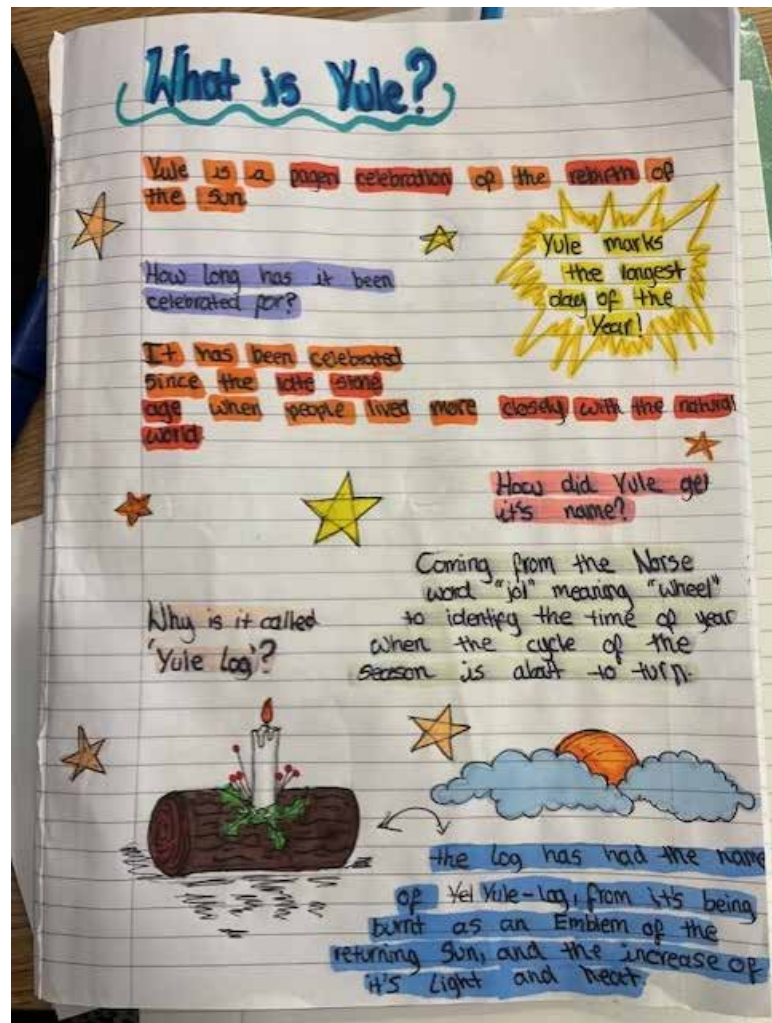 What is Yule?
Yule is a pagen celebration of the rebirth of
the Sun.
Yule marks
the longest
day of the
Year!
How long has it been
celebrated for?
It has been celebrated
since the late stone
age when people lived more closely with the natural
world
How did Yule get
it's name?
Coming from the Norse
word "jol" meaning "wheel"
to identify the time of year
when the cycle of the
season is about to turn.
Why is it called
'Yule Log'?
the Log has had the name
of Yel Yule-Log, from it's being
burnt as an Emblem of the
returning Sun, and the increase of
it's Light and heat.